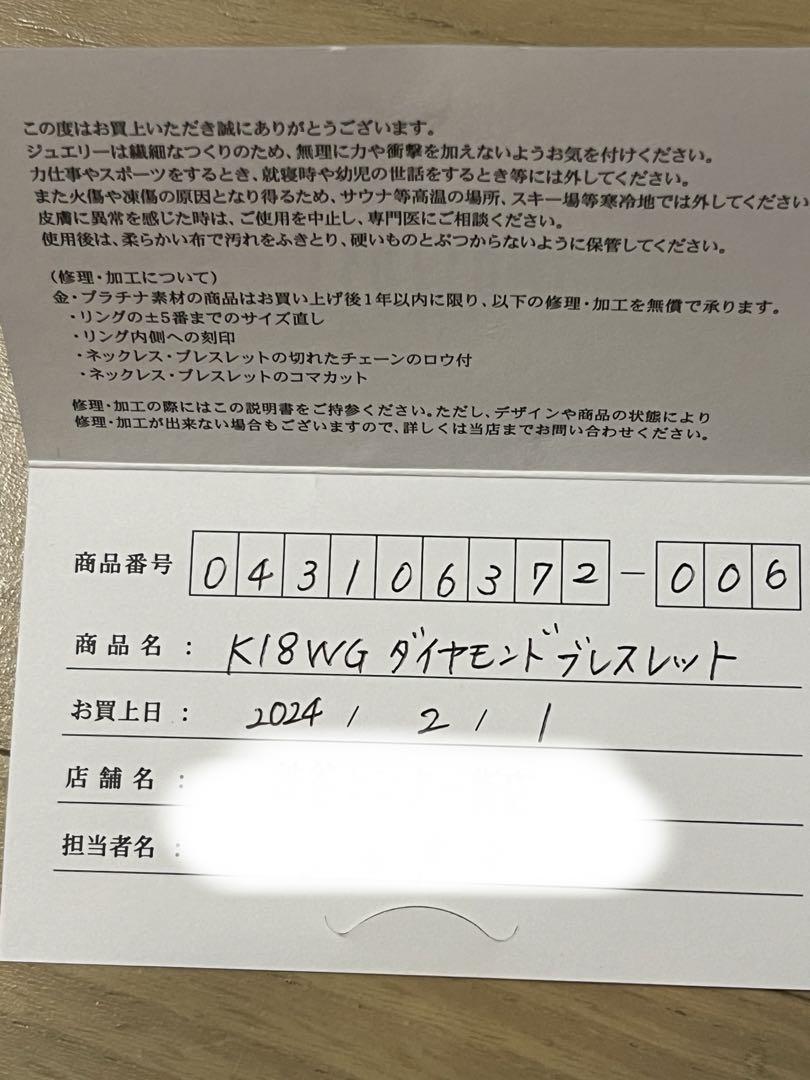 この度はお買上いただき誠にありがとうございます。
ジュエリーは繊細なつくりのため、無理に力や衝撃を加えないようお気を付けください。
力仕事やスポーツをするとき、就寝時や幼児の世話をするとき等には外してください。
また火傷や凍傷の原因となり得るため、サウナ等高温の場所、スキー場等寒冷地では外してください
皮膚に異常を感じた時は、ご使用を中止し、専門医にご相談ください。
使用後は、柔らかい布で汚れをふきとり、硬いものとぶつからないように保管してください。
(修理・加工について)
金・プラチナ素材の商品はお買い上げ後1年以内に限り、以下の修理・加工を無償で承ります。
・リングの±5番までのサイズ直し
・リング内側への刻印
・ネックレス・ブレスレットの切れたチェーンのロウ付
・ネックレス・ブレスレットのコマカット
修理・加工の際にはこの説明書をご持参ください。ただし、デザインや商品の状態により
修理・加工が出来ない場合もございますので、詳しくは当店までお問い合わせください。
商品番号 043106372-006
商品名 : K18WG ダイヤモンドブレスレット
お買上日 : 2024 / 2 / 1
店舗名 :
担当者名 :